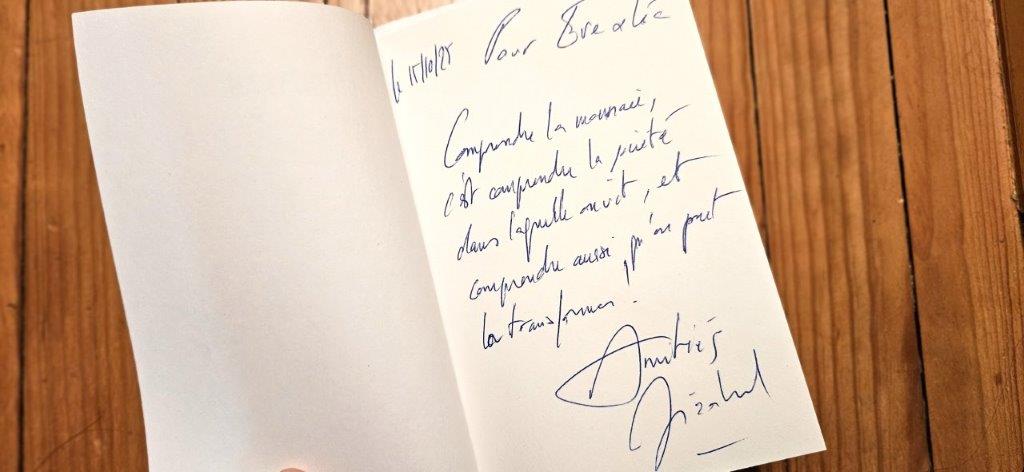 le 15/10/25
Pour
Comprendre la monnaie,
c'est comprendre la société
dans laquelle on vit, et
comprendre aussi, qu'on peut
la transformer !
Amitiés